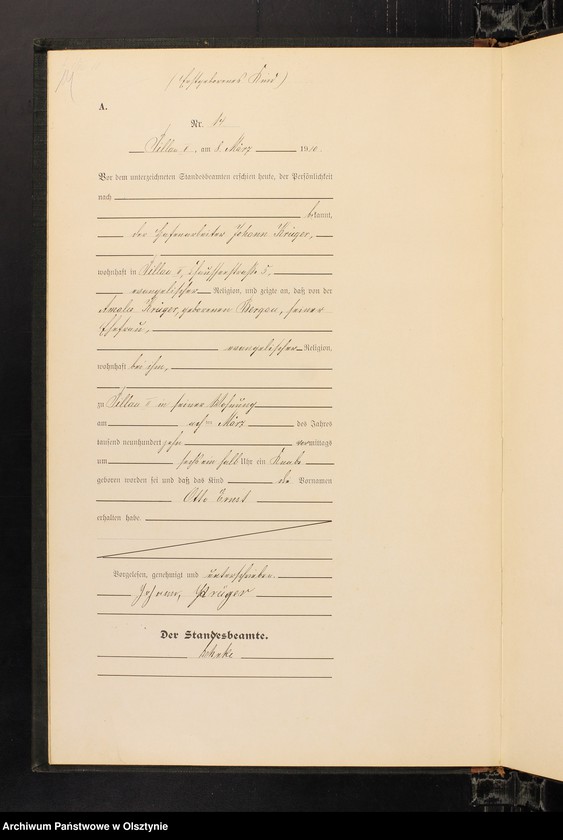 14
(Erstgeborenes Kind)
A.
Nr. 14
Pillau I, am 8. März 1910.
Vor dem unterzeichneten Standesbeamten erschien heute, der Persönlichkeit
nach
bekannt,
der Hafenarbeiter Johann Krüger,
wohnhaft in Pillau I, Chausseestraße 5,
evangelischer Religion, und zeigte an, daß von der
Amalie Krüger, geborenen Bergau, seiner
Ehefrau,
evangelischer Religion,
wohnhaft bei ihm,
zu Pillau I in seiner Wohnung
am März des Jahres
tausend neunhundert zehn vormittags
um halb Uhr ein Knabe
geboren worden sei und daß das Kind die Vornamen
Otto Ernst
erhalten habe.
Vorgelesen, genehmigt und unterschrieben.
Johann Krüger
Der Standesbeamte.
Archiwum Państwowe w Olsztynie